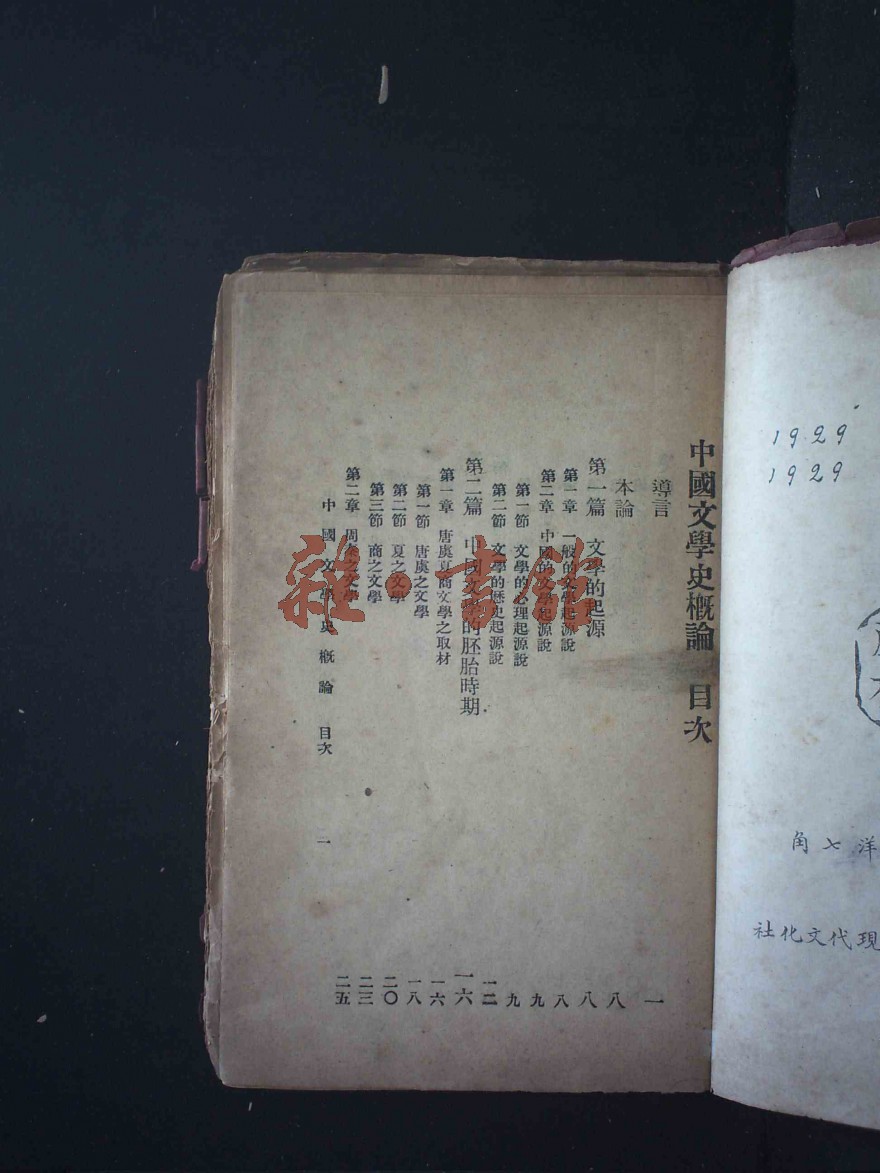 1929
1929
洋七角
現代文化社
中國文學史概論 目次
導言 一
本論 八
第一篇 文學的起源 八
第一章 一般的文學起源說 八
第二章 中國的文學起源說 九
第一節 文學的心理起源說 九
第二節 文學的歷史起源說 一二
第二篇 中國文學的胚胎時期 一六
第一章 唐虞夏商文學之取材 一六
第一節 唐虞之文學 一八
第二節 夏之文學 二〇
第三節 商之文學 二三
第二章 周秦之文學 二五
中國文學史概論 目次
雜·書館